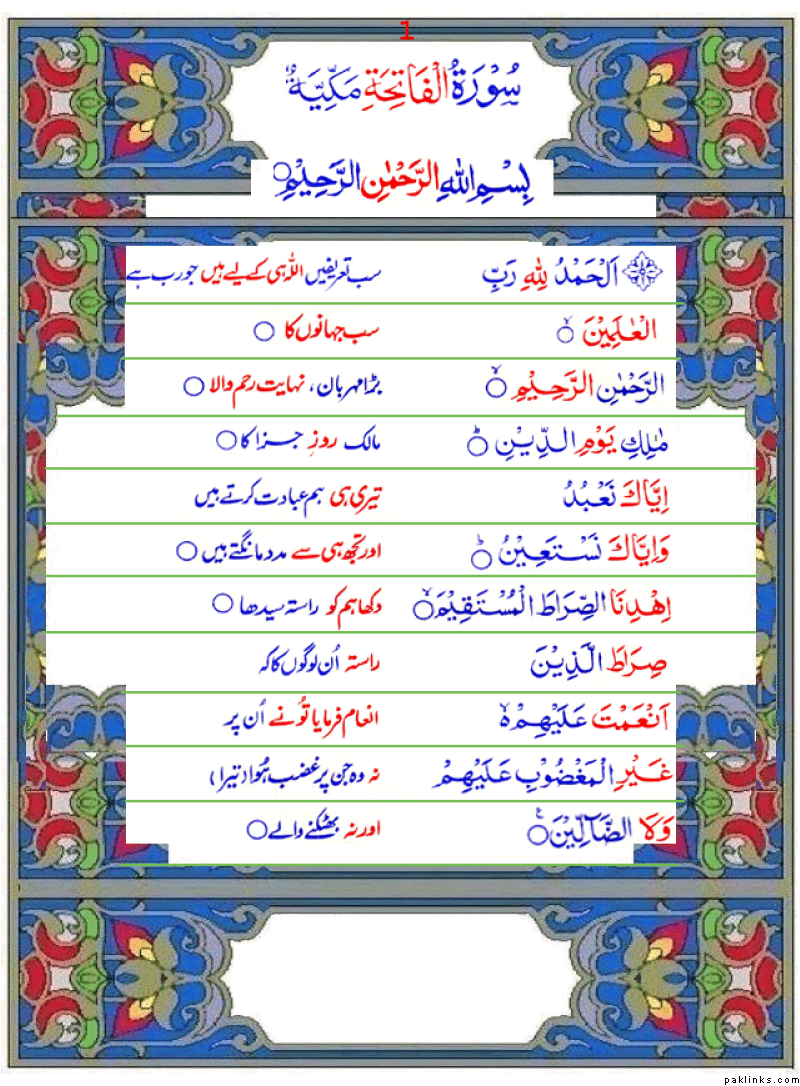 1
سُوْرَةُ الْفَاتِحَةِ مَكِّيَّةٌ
بِسْمِ اللّٰهِ الرَّحْمٰنِ الرَّحِيْمِ○
اَلْحَمْدُ لِلّٰهِ رَبِّ سب تعریفیں اللّٰہ ہی کے لیے ہیں جو رب ہے
الْعٰلَمِيْنَ ○ۙ سب جہانوں کا ○
الرَّحْمٰنِ الرَّحِيْمِ ○ۙ بڑا مہربان، نہایت رحم والا ○
مٰلِكِ يَوْمِ الدِّيْنِ ○ؕ مالک روزِ جزا کا ○
اِيَّاكَ نَعْبُدُ تیری ہی ہم عبادت کرتے ہیں
وَاِيَّاكَ نَسْتَعِيْنُ ○ؕ اور تجھ ہی سے مدد مانگتے ہیں ○
اِهْدِنَا الصِّرَاطَ الْمُسْتَقِيْمَ ○ۙ دکھا ہم کو راستہ سیدھا ○
صِرَاطَ الَّذِيْنَ راستہ اُن لوگوں کا کہ
اَنْعَمْتَ عَلَيْهِمْ ۙ۬ انعام فرمایا تُو نے اُن پر
غَيْرِ الْمَغْضُوْبِ عَلَيْهِمْ نہ وہ جن پر غضب ہُوا (تیرا)
وَلَا الضَّآلِّيْنَ ○ۧ اور نہ بھٹکنے والے ○
paklinks.com